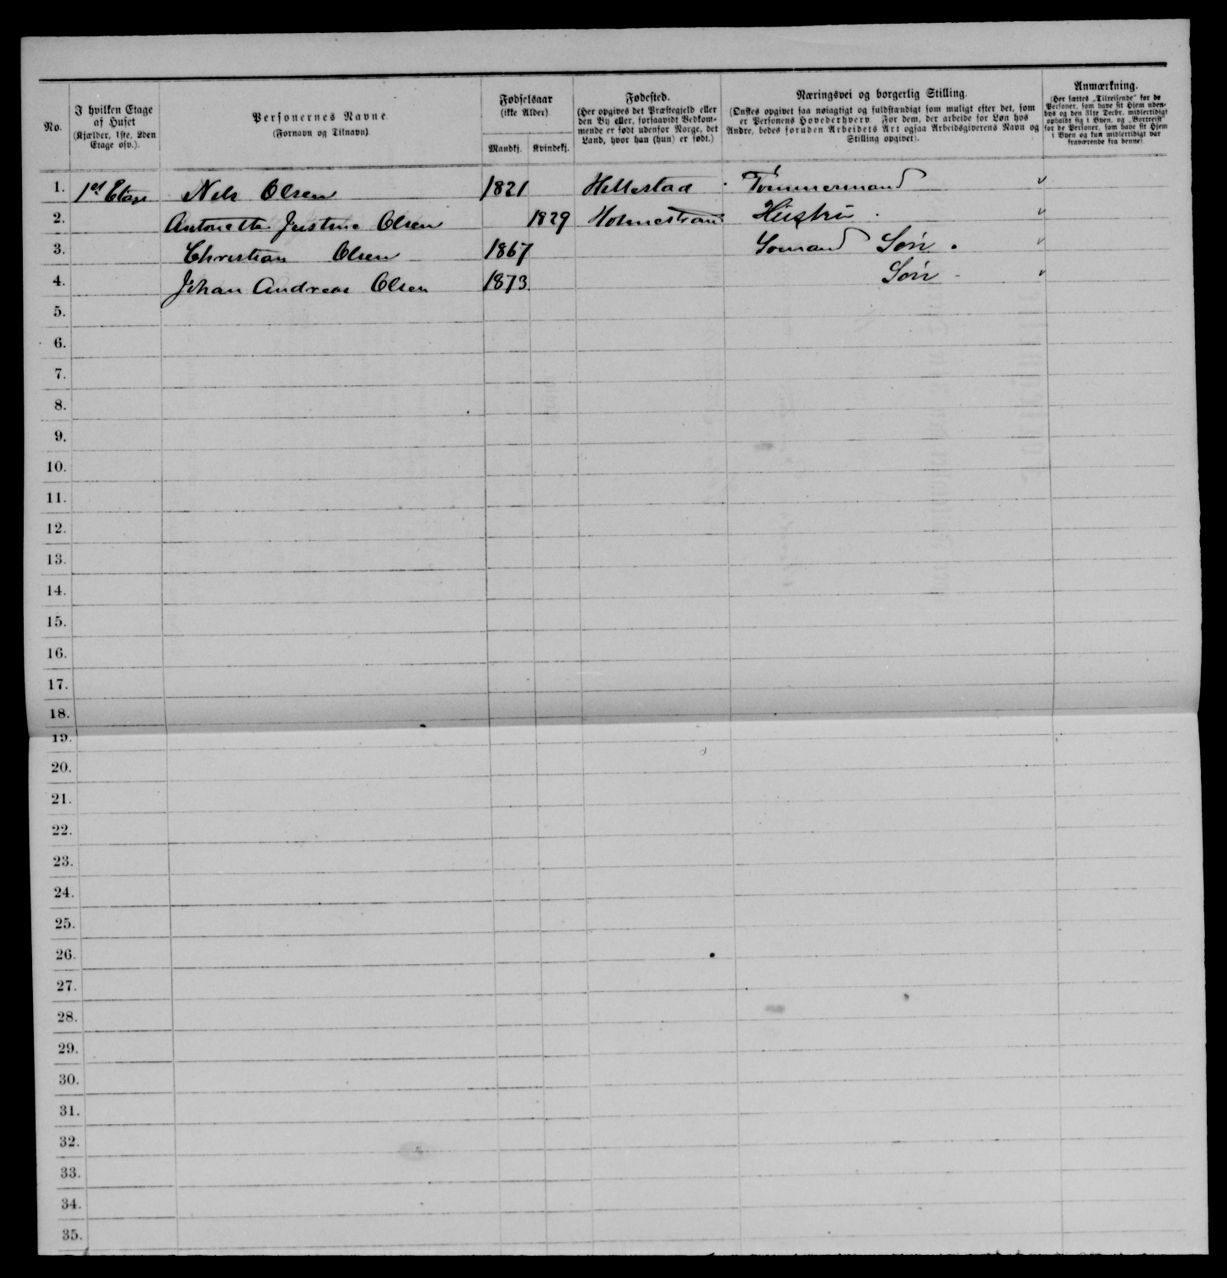 No.
I hvilken Etage
af Huset
(Kjælder, 1ste, 2den
Etage osv.).
Personernes Navne
(Fornavn og Tilnavn)
Fødselsaar
(ikke Alder)
Mandkj.
Kvindekj.
Fødested.
(Her opgives det Præstegjeld eller
den By eller, forsaavidt Vedkom-
mende er født udenfor Norge, det
Land, hvor han (hun) er født.)
Næringsvei og borgerlig Stilling.
(Ønskes opgivet saa nøiagtigt og fuldstændigt som muligt efter det, som
er Personens Hovederhverv. For dem, der arbeide for Løn hos
Andre, bedes foruden Arbeidets Art ogsaa Arbeidsgiverens Navn og
Stilling opgivet).
Anmærkning.
(Her sættes „Tilreisende" for de
Personer, som have sit Hjem uden-
bys og den 31te Decbr. midlertidigt
opholdt sig i Byen, og „Bortreist"
for de Personer, som have sit Hjem
i Byen og kun midlertidigt var
fraværende fra denne)
1. 1st Etage Nels Olsen 1821 Hillestad Tømmermand
2. Antonette Justine Olsen 1829 Holmestrand Hustru
3. Christian Olsen 1867 Sømand Søn
4. Johan Andreas Olsen 1873 Søn
5.
6.
7.
8.
9.
10.
11.
12.
13.
14.
15.
16.
17.
18.
19.
20.
21.
22.
23.
24.
25.
26.
27.
28.
29.
30.
31.
32.
33.
34.
35.